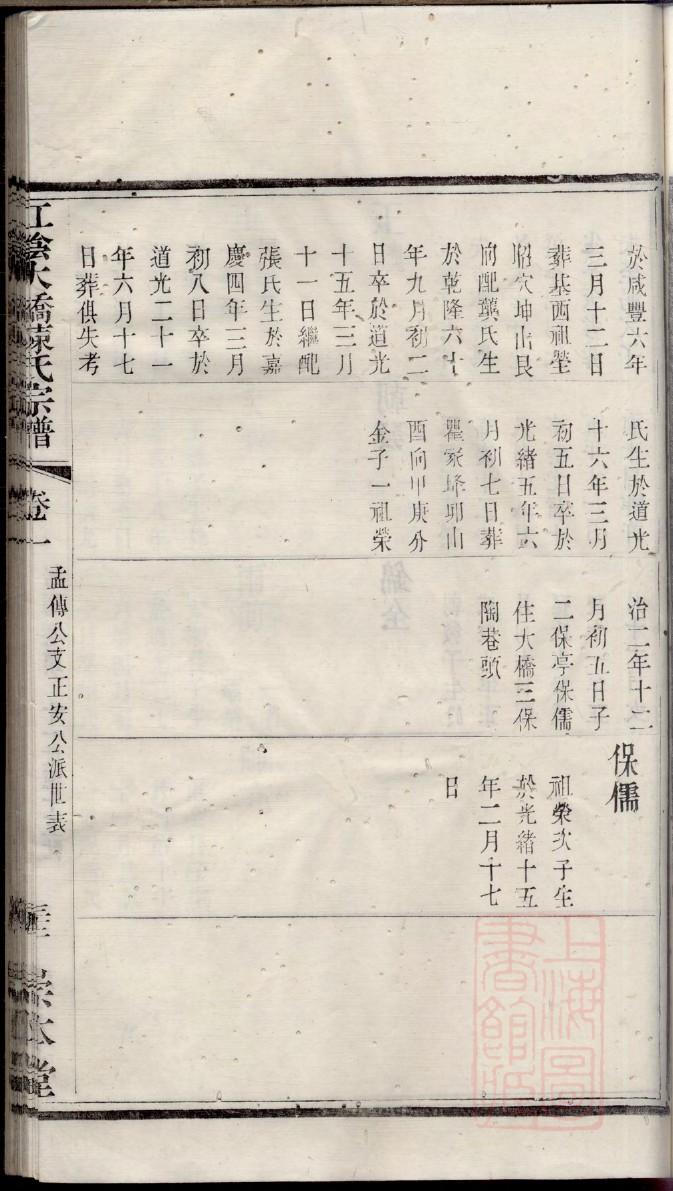 於咸豐六年
三月十二日
葬基西祖塋
昭穴坤山艮
向配龔氏生
於乾隆六十
年九月初二
日卒於道光
十五年三月
十一日繼配
張氏生於嘉
慶四年三月
初八日卒於
道光二十一
年六月十七
日葬俱失考
氏生於道光
十六年三月
初五日卒於
光緒五年六
月初七日葬
瞿家絳卯山
酉向甲庚分
金子一祖榮
治二年十二
月初五日子
二保亭保儒
住大橋三保
陶巷頭
保儒
祖榮次子生
於光緒十五
年二月十七
日
江陰大橋陳氏宗譜
卷一
孟傳公支正安公派世表
宗本堂
上海圖
書館藏